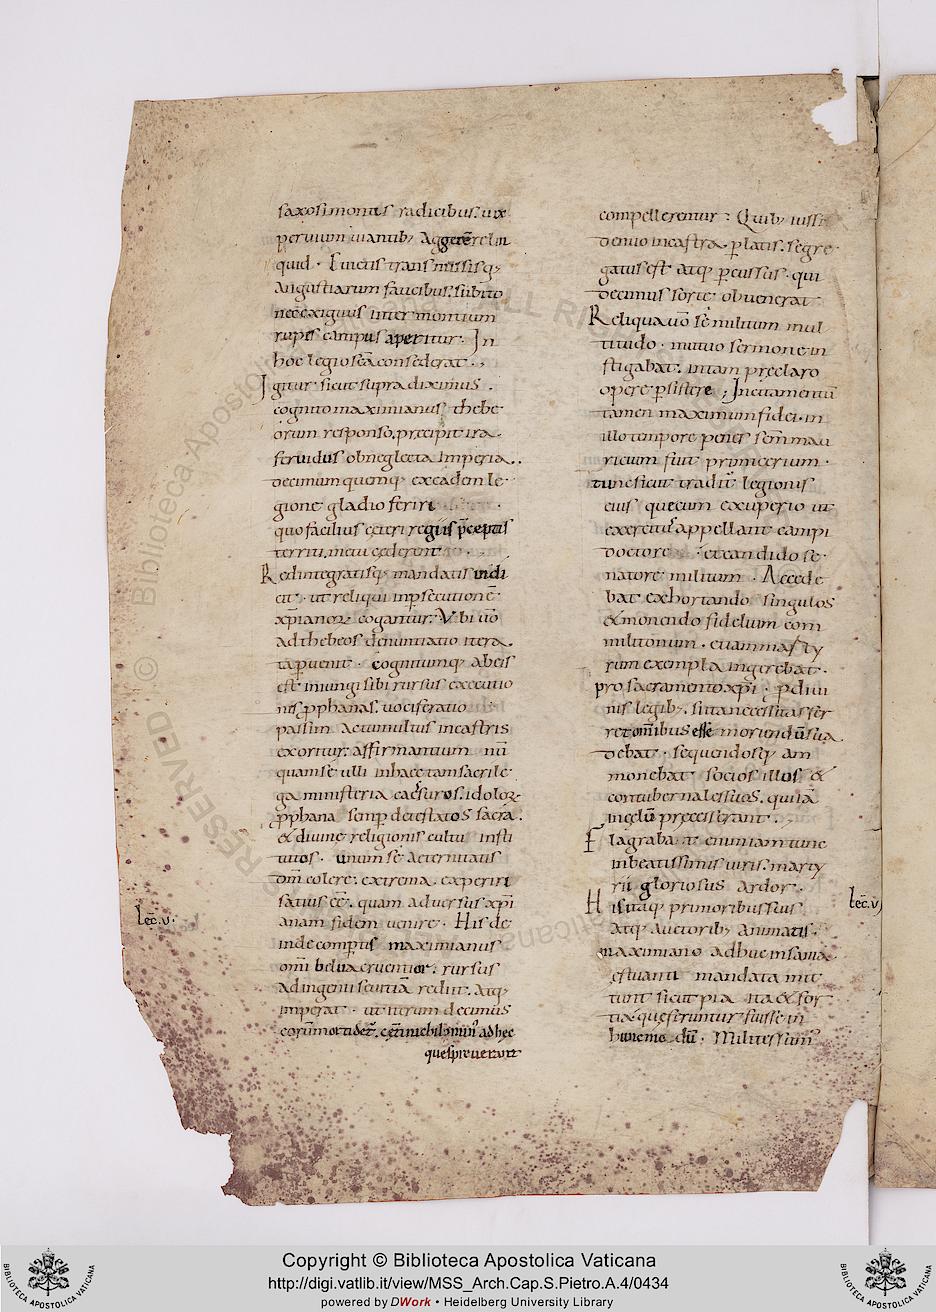 saxosi montis radicibus. vix
pervium viantib; Aggerem relin
quid. Evictis transmissisq;
Angustiarum faucibus. subito
nec exiguus inter montium
rupes campus aperitur. In
hoc legio sc̄a consederat.;
Igitur sicut supra diximus.
cognito maximianus thebe
orum responso. precipiti ira.
fervidus ob neglecta imperia..
Decimum quemq; ex eadem le
gione gladio feriri
quo facilius ceteri regiis p̄ceptis
territi. metu cederent
Redintegratisq; mandatis indi
cit. ut reliqui in persecutionē
xp̄ianor̄ cogantur. Vbi ūo
ad thebeos denuntiatio itera.
ta puenit. cognitumq; ab eis
est iniungi sibi rursus executio
nis prphanas. vociferatio
passim ac tumultus in castris
exoritur. affirmantium nū
quam se ulli in haec tam sacrile
ga ministeria caessuros. idolor̄
pphana semp detestatos sacra.
& divine religionis cultu insti
tutos. unum se aeternitatis
dm̄ colere. extrema experiri
satius eē. quam adversus xp̄i
anam fidem venire. His de
inde compertis maximianus
omi belua cruentior. rursus
ad ingenii sevitiā redut. atq;
imperat. ut iterum decimus
eorum morti det̄. cet̄i nichilomin' ad hec
que spreverant
compellerentur: Quib; iussis
denuo in castra platis. segre
gatus est atq; pcussus. qui
decimus sorte obvenerat
Reliqua ūo se militum mul
titudo. mutuo sermone in
stigabat. in tam preclaro
opere psistere; Incitamentū
tamen maximum fidei. in
illo tempore penes sc̄m mau
ricium fuit primicerium.
tunc sicut tradit̄ legionis
eius que cum exuperio ut
exercitu appellant campi
doctore et candido se
natore militum. Accede
bat exhortando singulos
& monendo fidelium com
militonum. etiam mar̄ty
rum exempla ingerebat.
pro sacramento xp̄i. p divi
nis legib; si ita necessitas fer
ret omībus esse moriendū sua
debat. sequendosq; am
monebat socios illos. &
contubernales suos. qui iā
in celū precesserant.
Flagrabat enim iam tunc
in beatissimis viris. marty
rii gloriosus ardor.
lec̄. v.
His itaq; primoribus suis
lec̄. v
atq; auctorib; animatis.
maximiano adhuc insania.
estuanti mandata mit
tunt sicut pia ita & for
tia. que feruntur fuisse in
hunc modū. Milites sum'
Copyright © Biblioteca Apostolica Vaticana
http://digi.vatlib.it/view/MSS_Arch.Cap.S.Pietro.A.4/0434
powered by DWork • Heidelberg University Library